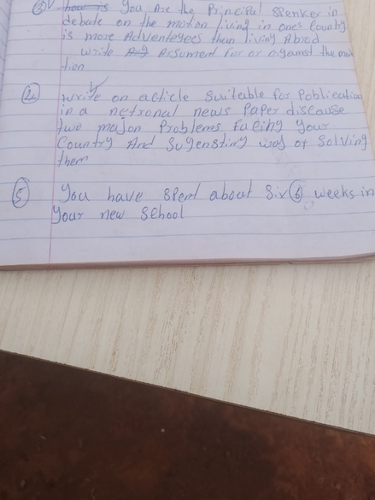 ③ how is You Are the Principal Spenker in
debate on the motion living in ones Country
is more Adventeyees than living Abrod
write Ag Argument for or against the mo
tion
②. write on article Suitable for Poblication
in a netronal news Paper discause
two major Problems facing Your
Country And Sugensting way of Solving
them
⑤ You have Spent about Six ⑥ weeks in
Your new School